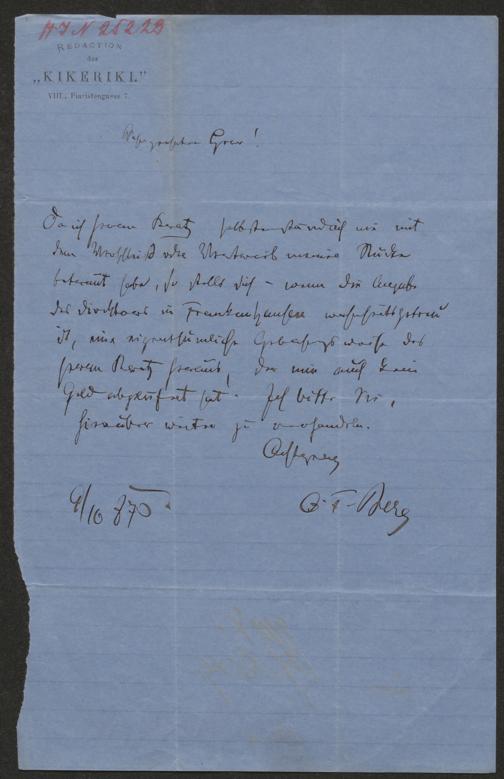 H I N 25223
REDACTION
des
„KIKERIKI."
VIII., Piaristengasse 7.
Sehr geehrter Herr!
Da ich Herrn Beratz selbstverständlich nie mit
dem Verschleiß oder Vertrieb meiner Stücke
betraut habe, so stellt sich – wenn die Angabe
des Direktors in Frankenhausen wahrheitsgetreu
ist, eine eigenthümliche Gebahrungsweise des
Herrn Beratz heraus, der mir auch kein
Geld abgeführt hat. Ich bitte Sie,
hierüber weiter zu verhandeln.
Achtungsv
9/10 875.
O. F. Berg